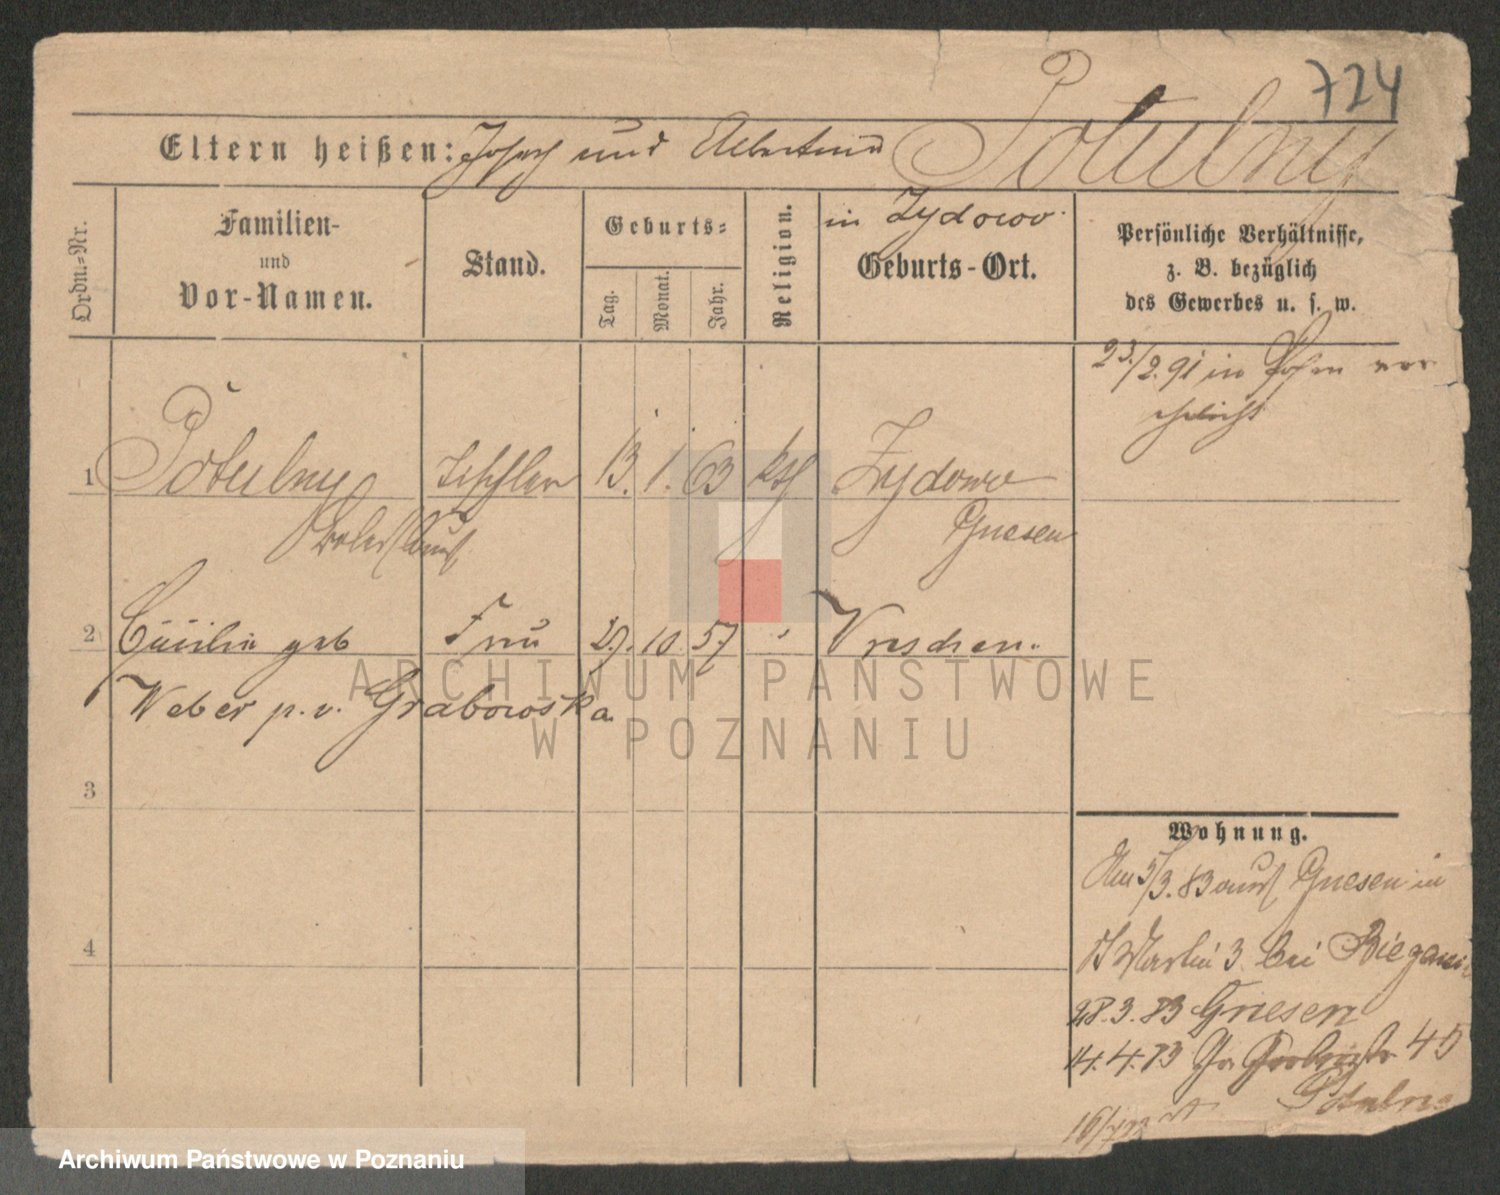 724
Potulny
Eltern heißen: Josef und Albertina
in Zydowo
Ordn.=Nr.
Familien-
und
Vor-Namen.
Stand.
Geburts=
Tag.
Monat.
Jahr.
Religion.
Geburts-Ort.
Persönliche Verhältnisse,
z. B. bezüglich
des Gewerbes u. s. w.
23./2.91 in Posen
1 Potulny Tischler 13. 1. 63 kth Zydowo
Gnesen
2 Cäcilie geb Frau 29. 10. 57 Wreschen.
Weber p. v. Grabowska
3
4
Wohnung.
Am 5/3.83 aus Gnesen in
St Martin 3. bei
28.3.83 Gnesen
14.4.83 Gr 45
Potulny
ARCHIWUM PAŃSTWOWE
W POZNANIU
Archiwum Państwowe w Poznaniu